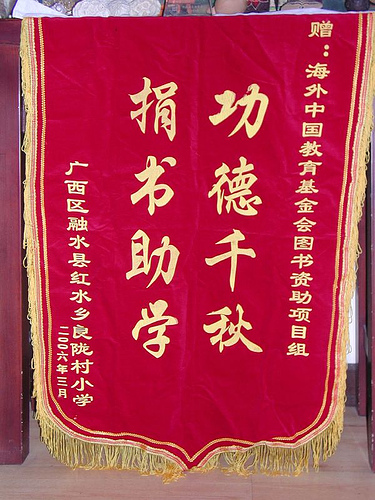 赠：海外中国教育基金会图书资助项目组
功德千秋
捐书助学
广西区融水县红水乡良陇村小学
二00六年三月